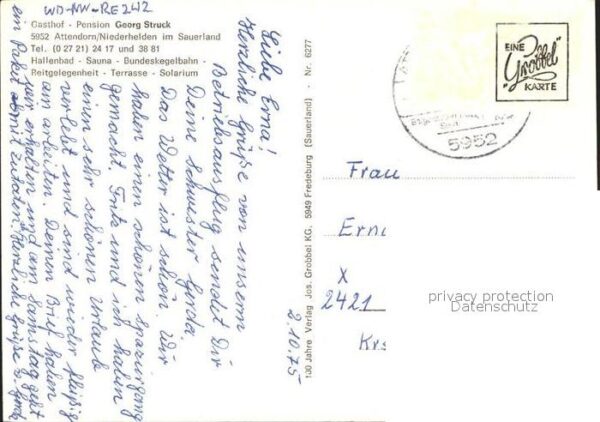 WD-NW-RE242
Gasthof - Pension Georg Struck
5952 Attendorn/Niederhelden im Sauerland
Tel. (0 27 21) 24 17 und 38 81
Hallenbad - Sauna - Bundeskegelbahn -
Reitgelegenheit - Terrasse - Solarium
Liebe Erna!
Herzliche Grüße von unserm
Betriebsausflug sendet Dir
Deine Schwester Gerda.
Das Wetter ist schön. Wir
haben einen schönen Spaziergang
gemacht. Fritz und ich haben
einen sehr schönen Urlaub
verlebt und sind wieder fleißig
am arbeiten. Deinen Brief haben
wir erhalten und am Samstag geht
ein Paket mit Zutaten. Herzliche Grüße
2.10.75
100 Jahre Verlag Jos. Grobbel KG, 5949 Fredeburg (Sauerland) - Nr. 6277
EINE
"Grobbel"
KARTE
5952
Frau
Erna
X
2421
Krs
privacy protection
Datenschutz